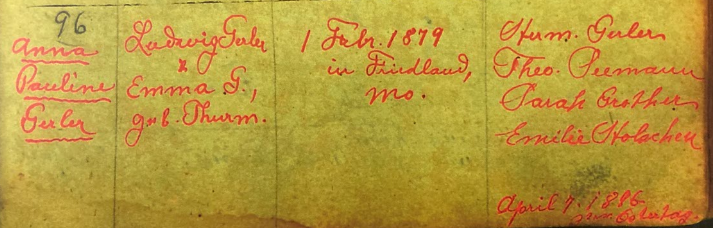 96
Anna
Pauline
Gerler
Ludwig Gerler
&
Emma G.,
geb. Thurm.
1 Febr. 1879
in Friedland,
Mo.
Herm. Gerler
Theo. Seemann
Sarah Grother
Emilie Holschen
April 7. 1886